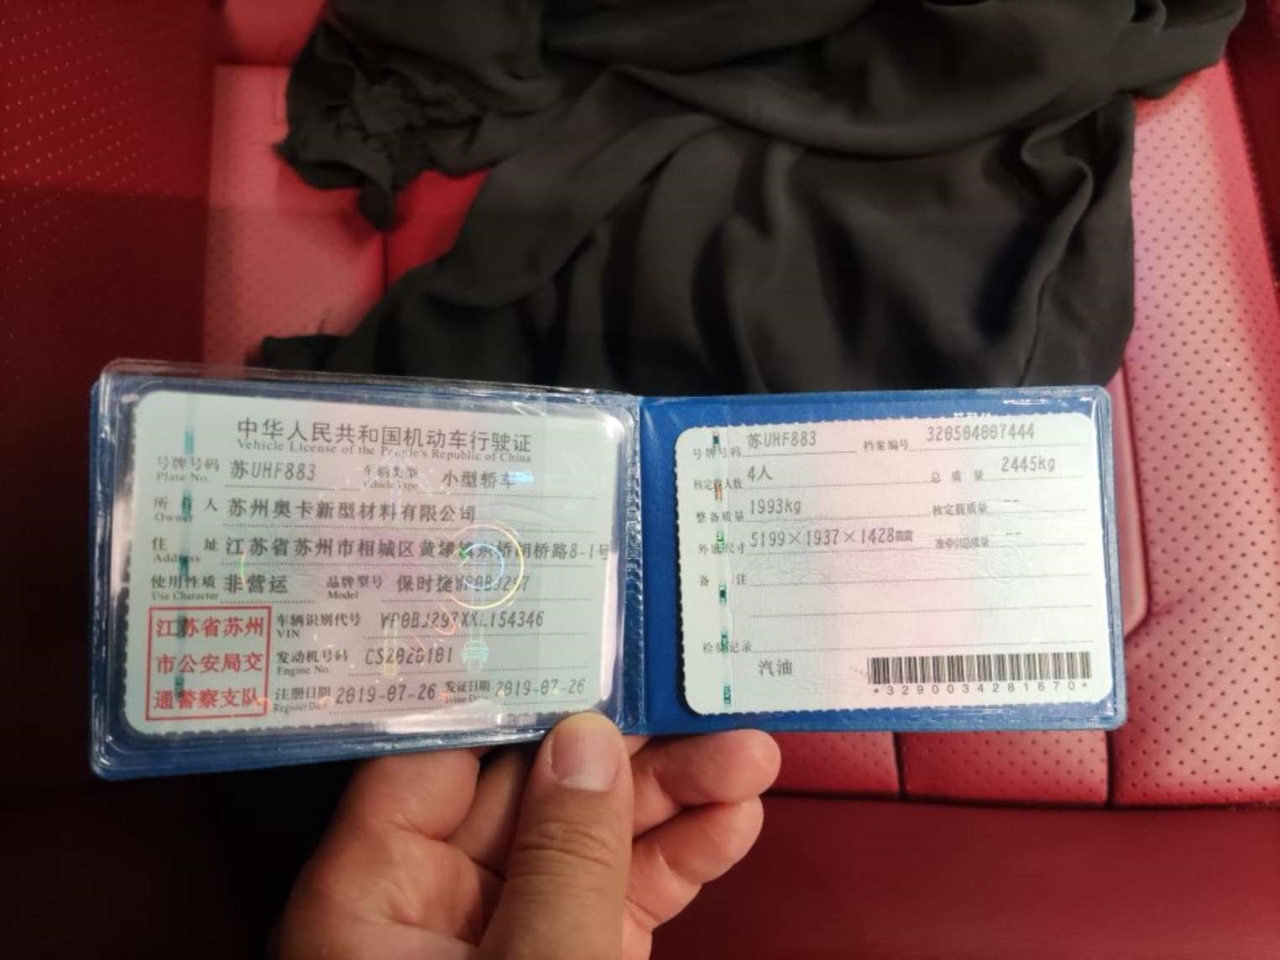 中华人民共和国机动车行驶证
Vehicle License of the People's Republic of China
号牌号码 苏UHF883 车辆类型 小型轿车
Plate No. Vehicle Type
所有人 苏州奥卡新型材料有限公司
Owner
住址 江苏省苏州市相城区黄埭镇东桥胡桥路8-1号
Address
使用性质 非营运 品牌型号 保时捷WP0BJ297
Use Character Model
江苏省苏州
市公安局交
通警察支队
车辆识别代号
VIN
发动机号码 CSZ020101
Engine No.
注册日期 2019-07-26 发证日期 2019-07-26
Register Date Issue Date
号牌号码 苏UHF883 档案编号 320504007444
核定载人数 4人 总质量 2445kg
整备质量 1993kg 核定载质量 --
外廓尺寸 5199×1937×1428mm 准牵引总质量 --
备注
检验记录
汽油
*3290034281670*